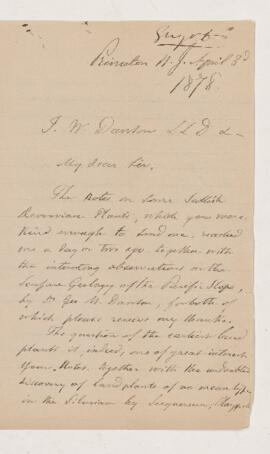 Guyot
Princeton N.J. April 3d
1878.
J. W. Dawson LLD &
My dear Sir.
The Notes on some Scottish
Devonian Plants, which you were
kind enough to send me, reached
me a day or two ago together with
the interesting observations on the
Surface Geology of the Pacific Slope,
by Dr Geo M. Dawson, for both of
which please receive my thanks.
The question of the earliest land
plants is, indeed, one of great interest
Your Notes, together with the undoubted
discovery of land plants of no mean type
in the Silurian by Lesquereux, Claypole